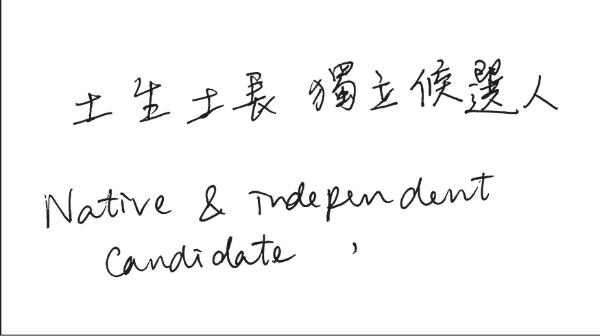 土生土長 獨立候選人
Native & independent
candidate ,